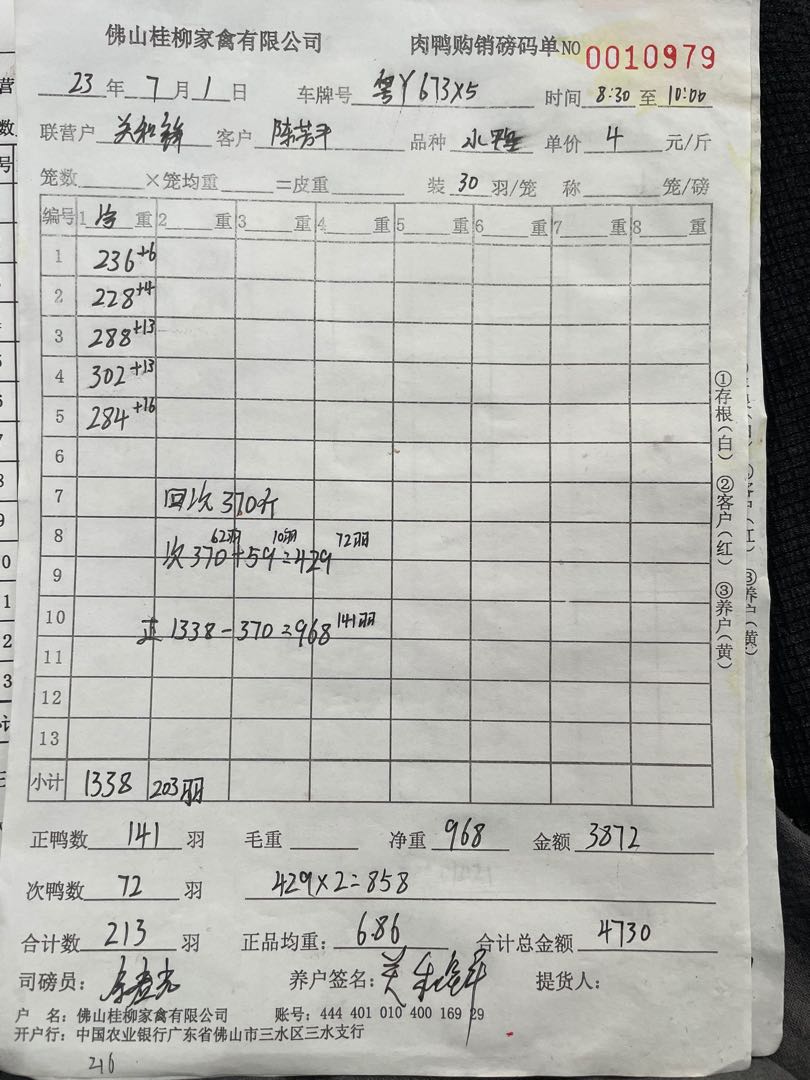 佛山桂柳家禽有限公司 肉鸭购销磅码单 NO 0010979
23年7月1日 车牌号 粤Y673X5 时间 8:30 至 10:00
联营户 关和锋 客户 陈芳平 品种 水鸭 单价 4 元/斤
笼数 ×笼均重 =皮重 装 30 羽/笼 称 笼/磅
编号 1 净重 2 重 3 重 4 重 5 重 6 重 7 重 8 重
1 236+6
2 228+4
3 288+13
4 302+13
5 284+16
6
7 回次370斤
8 62羽 10羽 72羽
次370+59=429
9
10 正1338-370=968 141羽
11
12
13
小计 1338 203羽
正鸭数 141 羽 毛重 净重 968 金额 3872
次鸭数 72 羽 429×2=858
合计数 213 羽 正品均重: 6.86 合计总金额 4730
司磅员: 养户签名: 关 提货人:
户 名: 佛山桂柳家禽有限公司 账号: 444 401 010 400 169 29
开户行: 中国农业银行广东省佛山市三水区三水支行
216
①存根(白) ②客户(红) ③养户(黄)